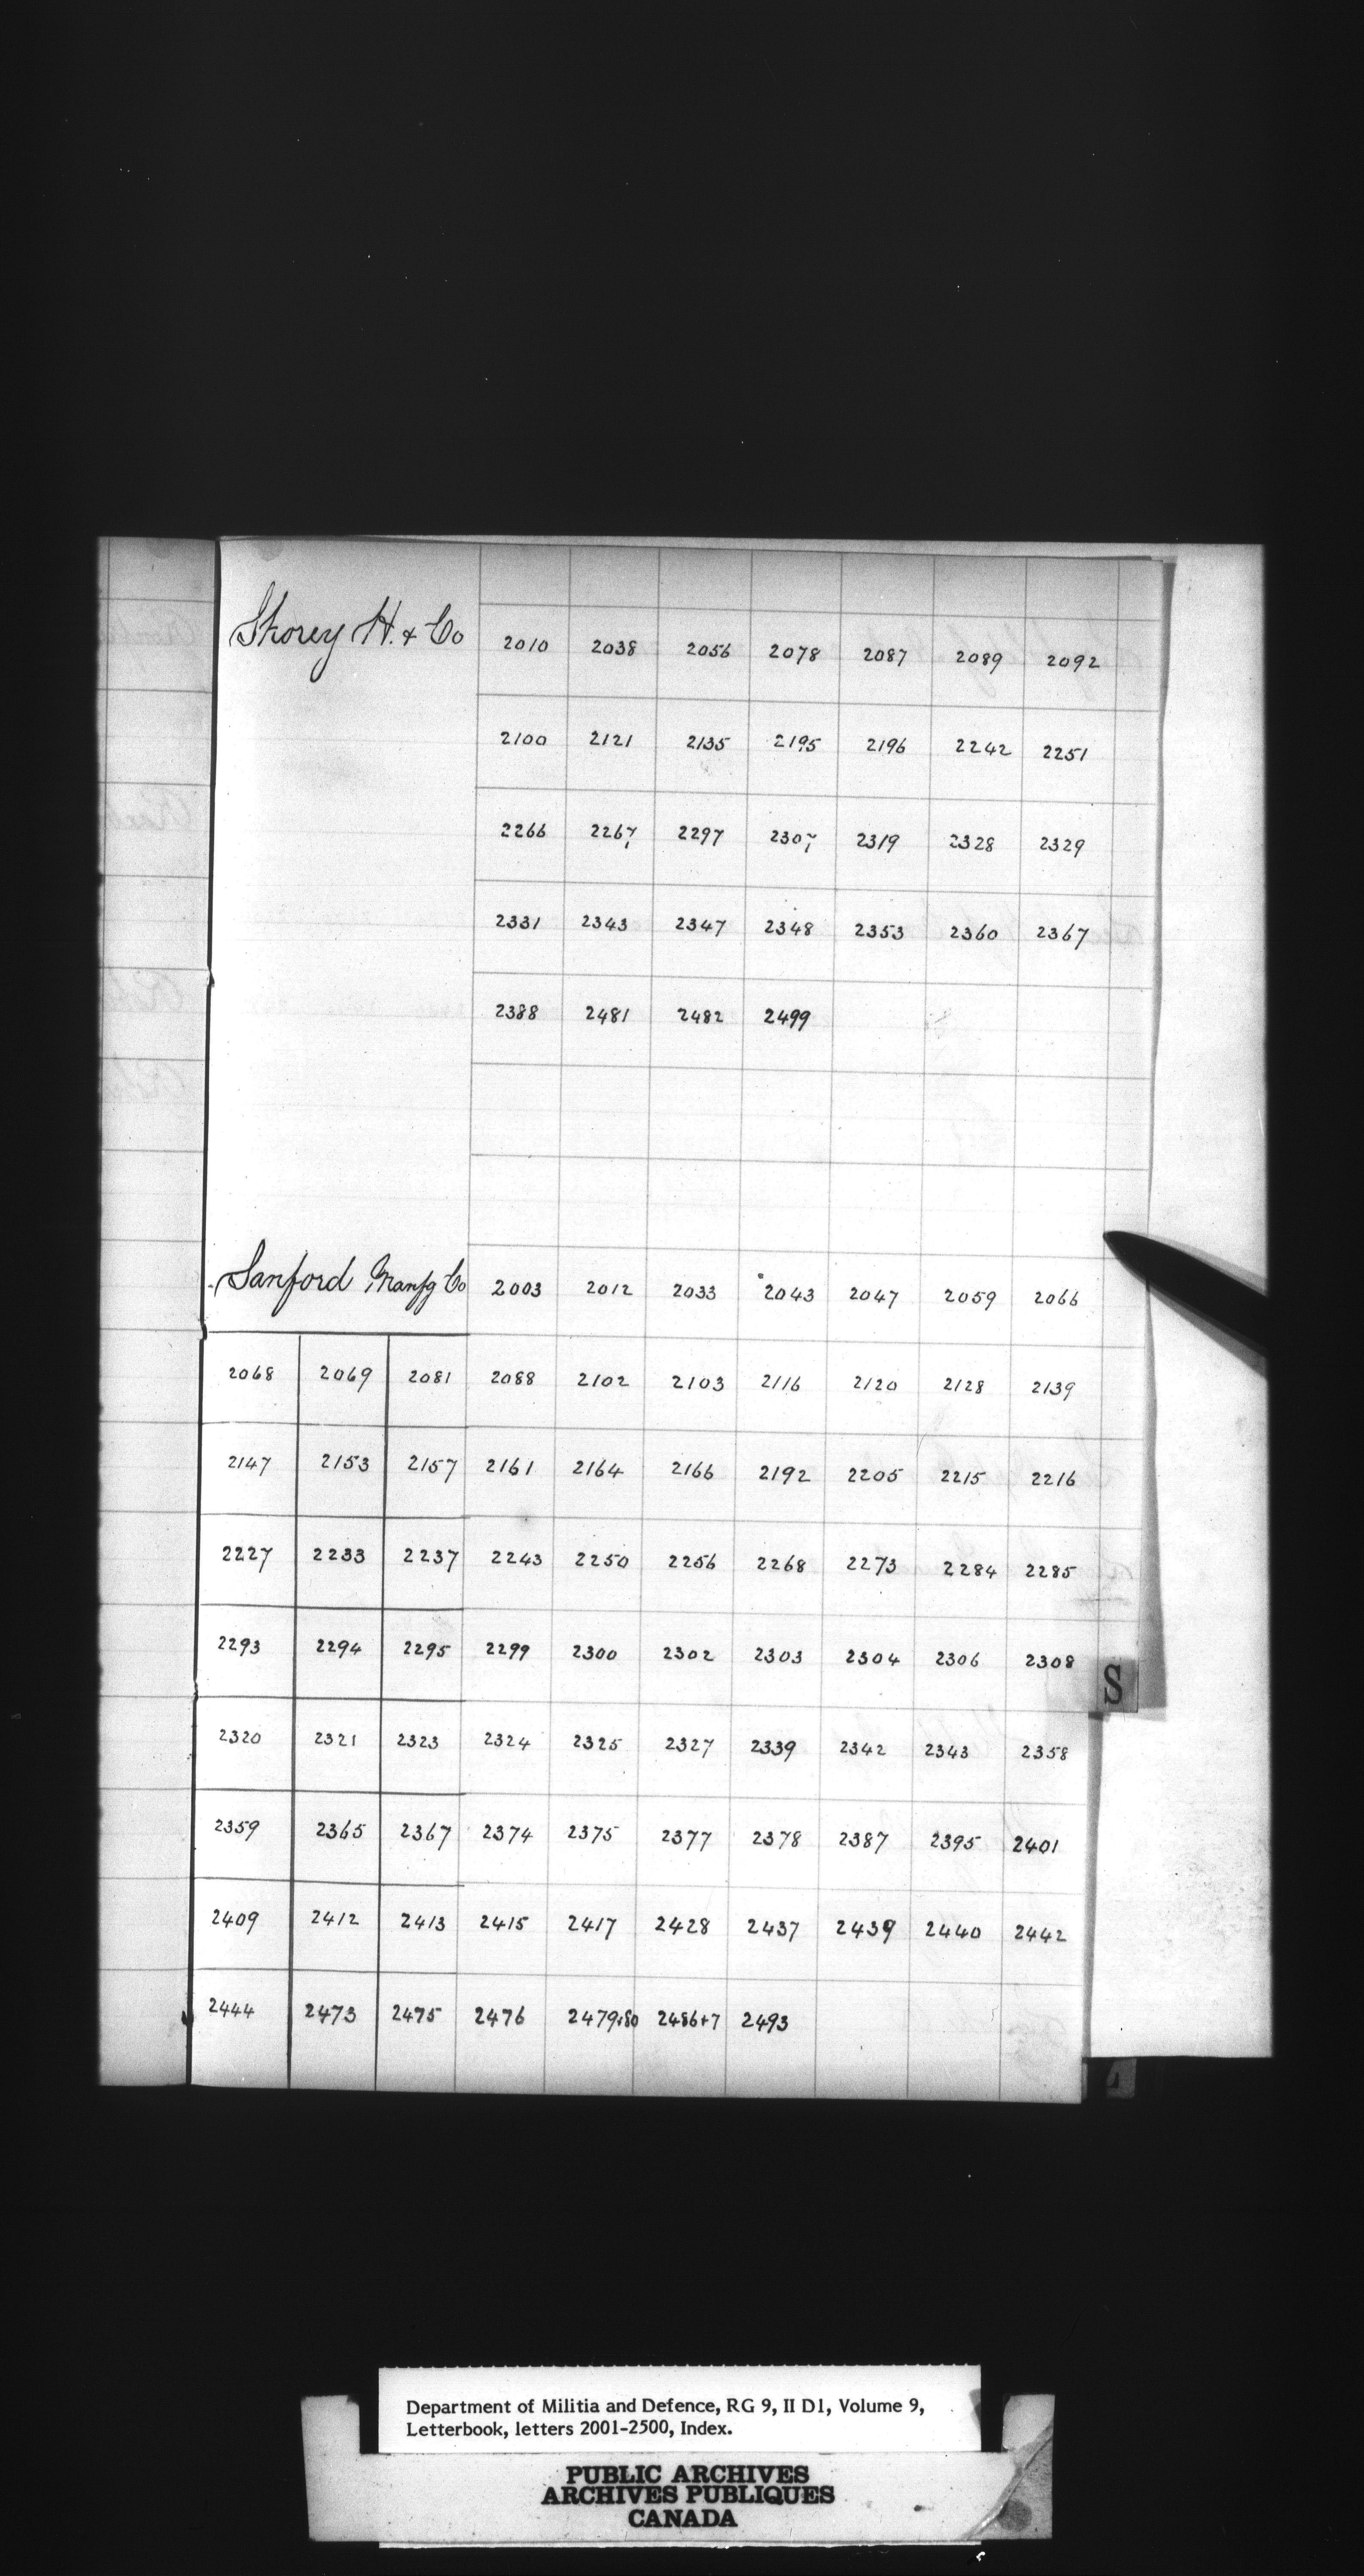 Shorey H. & Co 2010 2038 2056 2078 2087 2089 2092
2100 2121 2135 2195 2196 2242 2251
2266 2267 2297 2307 2319 2328 2329
2331 2343 2347 2348 2353 2360 2367
2388 2481 2482 2499
Sanford Manfg Co 2003 2012 2033 2043 2047 2059 2066
2068 2069 2081 2088 2102 2103 2116 2120 2128 2139
2147 2153 2157 2161 2164 2166 2192 2205 2215 2216
2227 2233 2237 2243 2250 2256 2268 2273 2284 2285
2293 2294 2295 2299 2300 2302 2303 2304 2306 2308
S
2320 2321 2323 2324 2325 2327 2339 2342 2343 2358
2359 2365 2367 2374 2375 2377 2378 2387 2395 2401
2409 2412 2413 2415 2417 2428 2437 2439 2440 2442
2444 2473 2475 2476 2479+80 2486+7 2493
Department of Militia and Defence, RG 9, II D1, Volume 9,
Letterbook, letters 2001-2500, Index.
PUBLIC ARCHIVES
ARCHIVES PUBLIQUES
CANADA